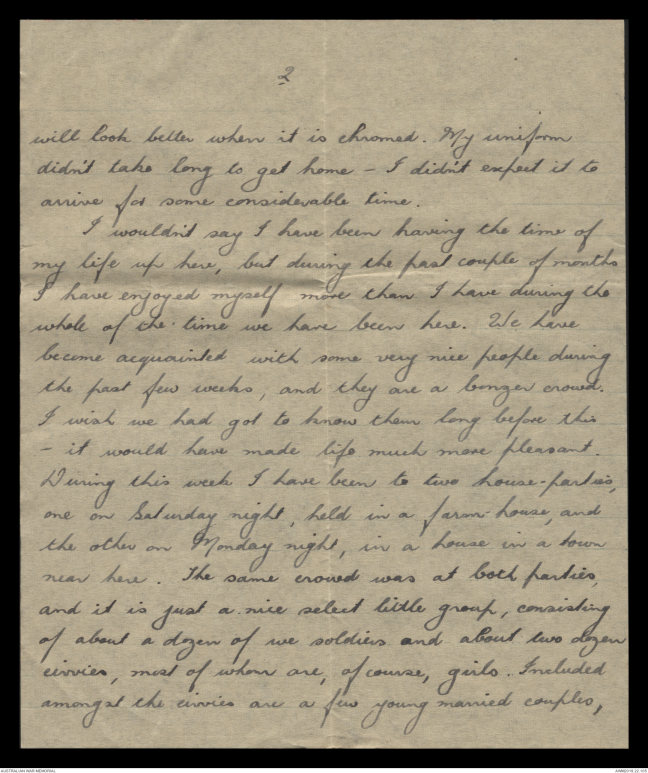 2
will look better when it is chromed. My uniform
didn't take long to get home – I didn't expect it to
arrive for some considerable time.
I wouldn't say I have been having the time of
my life up here, but during the past couple of months
I have enjoyed myself more than I have during the
whole of the time we have been here. We have
become acquainted with some very nice people during
the past few weeks, and they are a bonzer crowd.
I wish we had got to know them long before this
– it would have made life much more pleasant.
During this week I have been to two house-parties,
one on Saturday night, held in a farm-house, and
the other on Monday night, in a house in a town
near here. The same crowd was at both parties,
and it is just a nice select little group, consisting
of about a dozen of we soldiers and about two dozen
civvies, most of whom are, of course, girls. Included
amongst the civvies are a few young married couples,
AUSTRALIAN WAR MEMORIAL